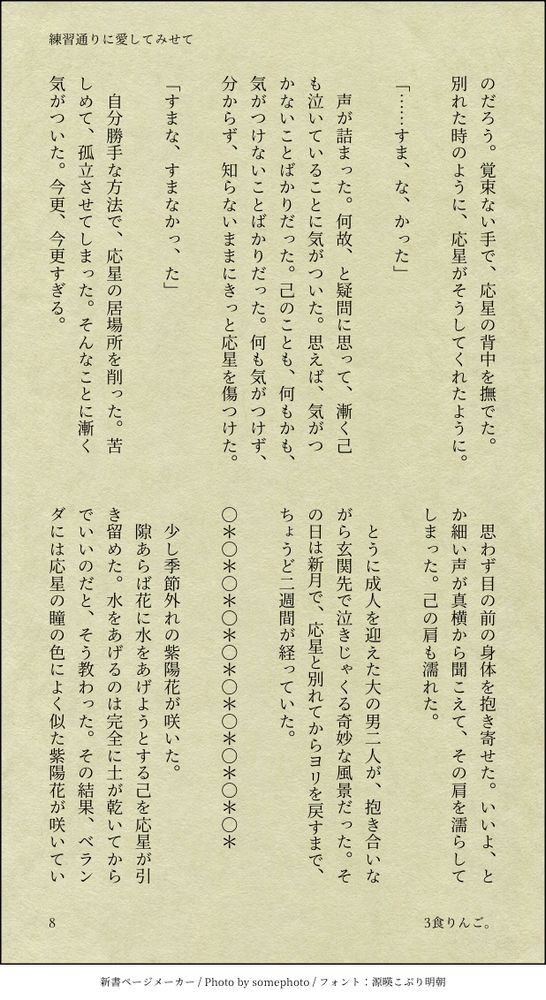 練習通りに愛してみせて
のだろう。覚束ない手で、応星の背中を撫でた。
別れた時のように、応星がそうしてくれたように。
「……すま、な、かった」
声が詰まった。何故、と疑問に思って、漸く己
も泣いていることに気がついた。思えば、気がつ
かないことばかりだった。己のことも、何もかも、
気がつけないことばかりだった。何も気がつけず、
分からず、知らないままにきっと応星を傷つけた。
「すまな、すまなかっ、た」
自分勝手な方法で、応星の居場所を削った。苦
しめて、孤立させてしまった。そんなことに漸く
気がついた。今更、今更すぎる。
思わず目の前の身体を抱き寄せた。いいよ、と
か細い声が真横から聞こえて、その肩を濡らして
しまった。己の肩も濡れた。
とうに成人を迎えた大の男二人が、抱き合いな
がら玄関先で泣きじゃくる奇妙な風景だった。そ
の日は新月で、応星と別れてからヨリを戻すまで、
ちょうど二週間が経っていた。
○＊○＊○＊○＊○＊○＊○＊○＊○＊
少し季節外れの紫陽花が咲いた。
隙あらば花に水をあげようとする己を応星が引
き留めた。水をあげるのは完全に土が乾いてから
でいいのだと、そう教わった。その結果、ベラン
ダには応星の瞳の色によく似た紫陽花が咲いてい
8
3食りんご。
新書ページメーカー / Photo by somephoto / フォント：源暎こぶり明朝